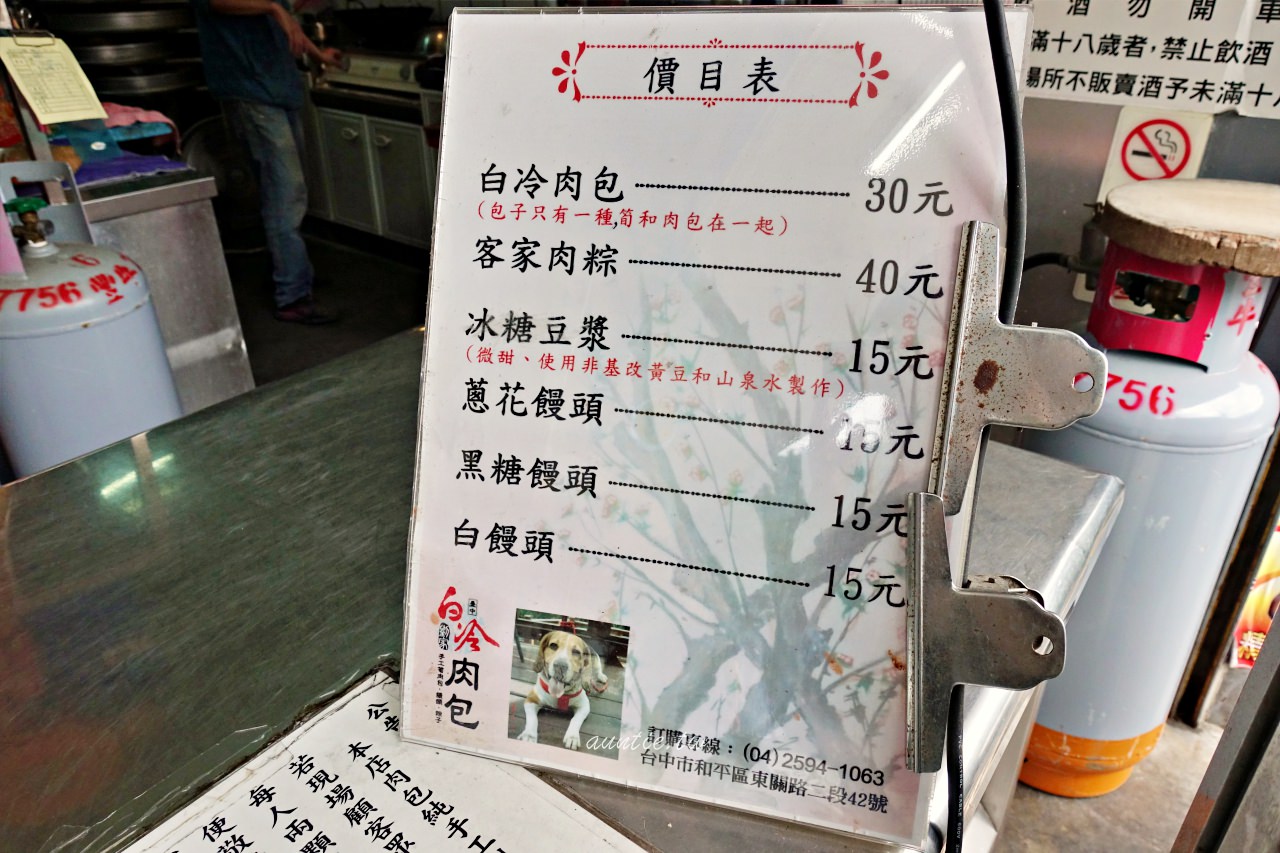 價目表
白冷肉包 30元
(包子只有一種,筍和肉包在一起)
客家肉粽 40元
冰糖豆漿 15元
(微甜、使用非基改黃豆和山泉水製作)
蔥花饅頭 15元
黑糖饅頭 15元
白饅頭 15元
臺中
白冷
肉包
訂購專線：(04)2594-1063
台中市和平區東關路二段42號
公告
本店肉包純手工
若現場顧客眾
每人兩顆
便敬
酒勿開車
滿十八歲者，禁止飲酒
場所不販賣酒予未滿十八
7756
7756